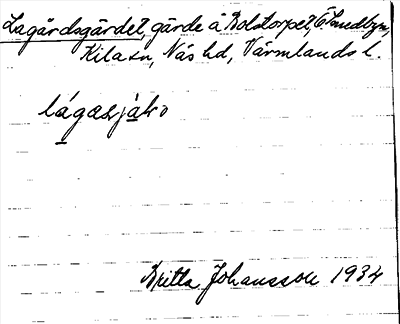 Lagårdsgärdet, gärde å Bolstorpet, Ö Smedbyn,
Kila sn, Näs hd, Värmlands l.
lágasjáko
Britta Johansson 1934